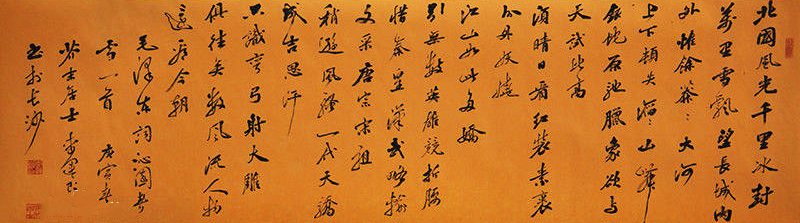 北國風光千里冰封
萬里雪飄望長城內
外惟餘莽々大河
上下頓失滔々山舞
銀蛇原馳臘象欲與
天試比高
須晴日看紅裝素裹
分外妖嬈
江山如此多嬌
引無數英雄競折腰
惜秦皇漢武略輸
文采唐宗宋祖
稍遜風騷一代天驕
成吉思汗
只識彎弓射大雕
俱往矣數風流人物
還看今朝
毛澤東詞沁園春
雪一首 庚寅春
居士
書於長沙